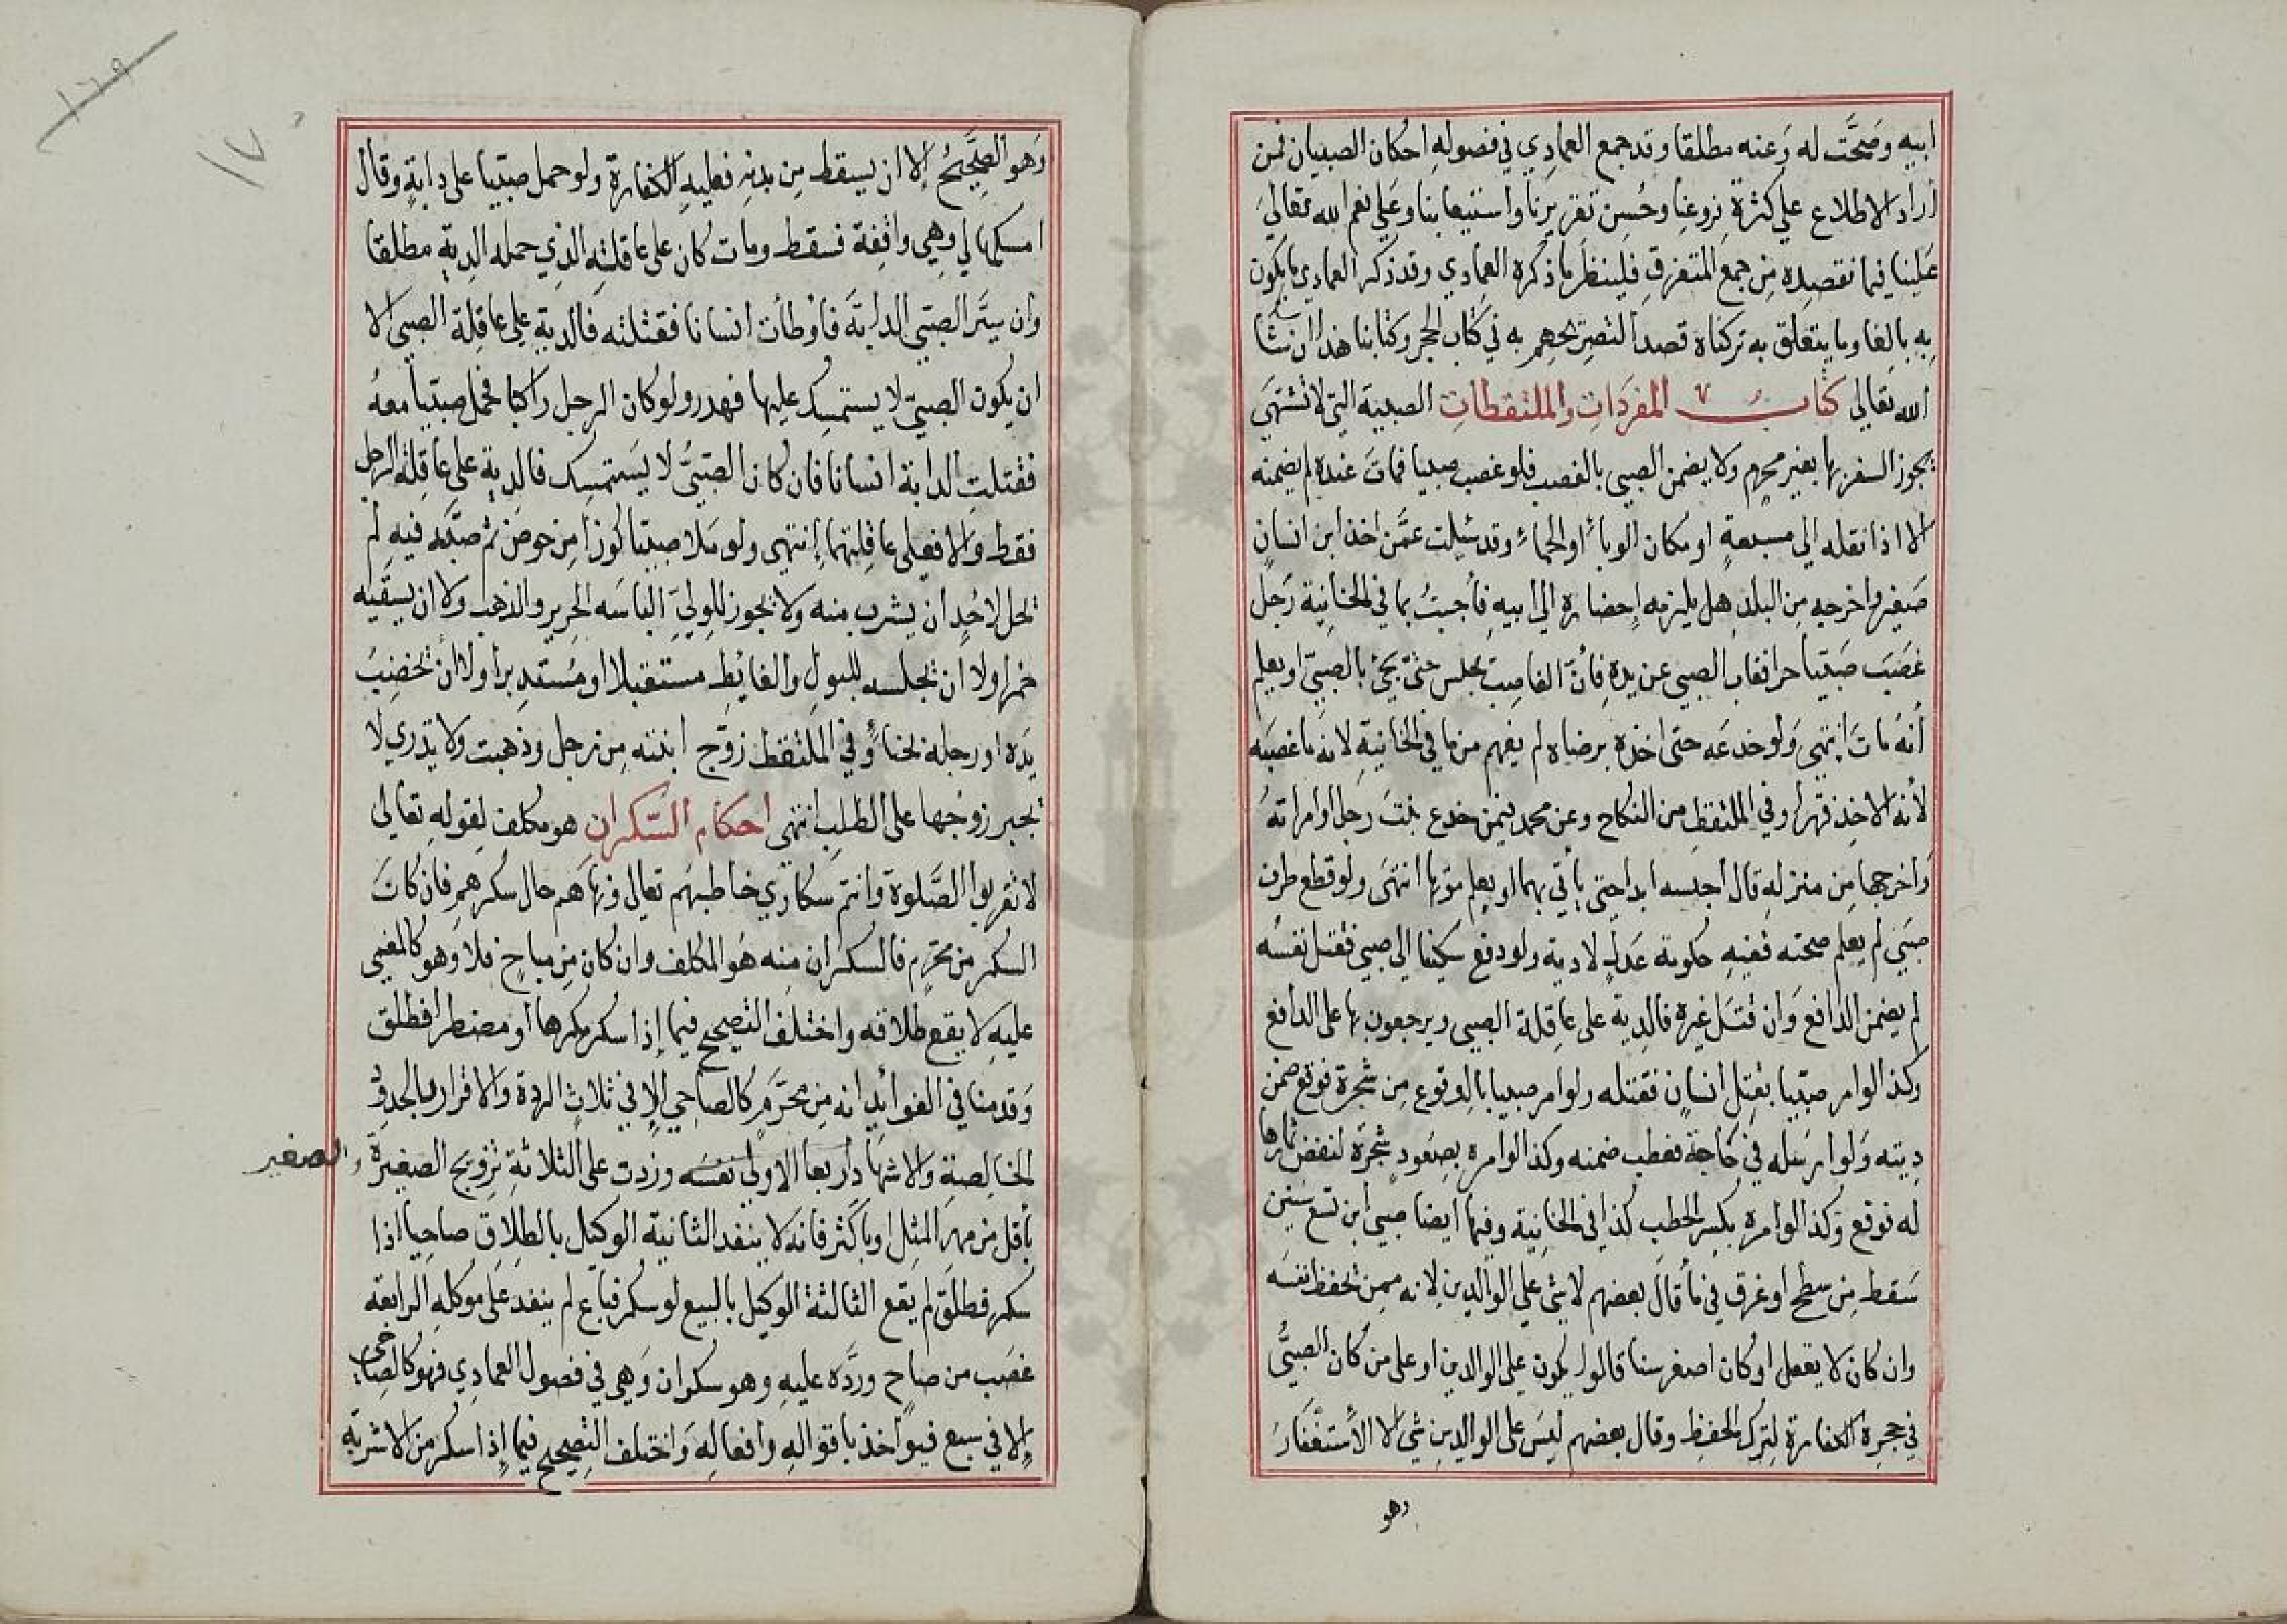 ابيه وصحت له وعنه مطلقا وقد جمع العمادي في فصوله احكان الصبيان فمن
اراد الاطلاع على كثرة فروعنا وحسن تقريرنا واستيعابنا وعلى نعم الله تعالى
علينا فيما نقصده من جمع المتفرق فلينظر ما ذكره العمادي وقد ذكر العمادي ما يكون
به بالغا وما يتعلق به تركناه قصدا لتصريحهم به في كتاب الحجر وكتابنا هذا ان شا
الله تعالى كتاب المفردات والملتقطات الصبية التي لا تشتهى
يجوز السفر بها بغير محرم ولا يضمن الصبي بالغصب فلو غصب صبيا فمات عنده لم يضمنه
الا اذا نقله الى مسبعة او مكان الوباء او الحماء وقد سئلت عمن اخذ ابن انسان
صغير واخرجه من البلد هل يلزمه احضاره الى ابيه فأجبت بما في الخانية رجل
غصب صبيا حرا فغاب الصبي عن يده فان الغاصب يحلس حتى يجئ بالصبي او يعلم
انه مات انتهى ولو خدعه حتى اخذه برضاه لم يفهم من ما في الخانية لانه ما غصبه
لأنه الاخذ قهرا وفي الملتقط من النكاح وعن محمد فيمن خدع بنت رجل او امراته
واخرجها من منزله قال أجلسه ابدا حتى يأتي بهما او يعلم موتها انتهى ولو قطع طرف
صبي لم يعلم صحته ففيه حكومة عدل لا دية ولو دفع سكينا الى صبي فقتل نفسه
لم يضمن الدافع وان قتل غيره فالدية على عاقلة الصبي ويرجعون بها على الدافع
وكذا لو امر صبيا بقتل انسان فقتله ولو امر صبيا بالوقوع من شجرة فوقع ضمن
ديته ولو ارسله في حاجة فعطب ضمنه وكذا لو امره بصعود شجرة لنفض ثمارها
له فوقع وكذا لو امره بكسر الحطب كذا في الخانية وفيها ايضا صبي ابن تسع سنين
سقط من سطح او غرق في ماء قال بعضهم لا شئ على الوالدين لانه ممن يحفظ نفسه
وان كان لا يعقل او كان اصغر سنا قالوا يكون على الوالدين او على من كان الصبي
في حجره الكفارة لترك الحفظ وقال بعضهم ليس على الوالدين شئ الا الأستغفار
وهو
١٦٩
١٧٠
وهو الصحيح الا ان يسقط من يده فعليه الكفارة ولو حمل صبيا على دابة وقال
امسكها لي وهي واقفة فسقط ومات كان على عاقلته الذي حمله الدية مطلقا
وان سير الصبي الدابة فأوطأت انسانا فقتلته فالدية على عاقلة الصبي الا
ان يكون الصبي لا يستمسك عليها فهدر ولو كان الرجل راكبا فحمل صبيا معه
فقتلت الدابة انسانا فان كان الصبي لا يستمسك فالدية على عاقلة الرجل
فقط والا فعلى عاقلتهما إنتهى ولو ملا صبيا كوزا من حوض ثم صبه فيه لم
يحل لاحد ان يشرب منه ولا يجوز للولي الباسه الحرير والذهب ولا ان يسقيه
خمرا ولا ان يجلسه للبول والغايط مستقبلا او مستدبرا ولا ان يخضب
يده او رجله بحناء وفي الملتقط زوج ابنته من رجل وذهبت ولا يدري لا
يجبر زوجها على الطلب انتهى احكام السكران هو مكلف لقوله تعالى
لا تقربوا الصلوة وانتم سكاري خاطبهم تعالى ونهاهم حال سكرهم فان كان
السكر من محرم فالسكران منه هو المكلف وان كان من مباح فلا وهو كالمغمى
عليه لا يقع طلاقه واختلف التصحيح فيما إذا سكر مكرها أو مضطرا فطلق
وقدمنا في الفوائد انه من محرم كالصاحي الا في ثلاث الردة والاقرار بالحدود
الخالصة والاشهاد اربعا الاولى نفسه وزدت على الثلاثة تزويج الصغيرة
والصغير
بأقل من مهر المثل او باكثر فانه لا ينفد الثانية الوكيل بالطلاق صاحيا اذا
سكر فطلق لم يقع الثالثة الوكيل بالبيع لو سكر فباع لم ينفد على موكله الرابعة
غصب من صاح ورده عليه وهو سكران وهي في فصول العمادي فهو كالصاحي
إلا في سبع فيؤاخذ باقواله وافعاله واختلف التصحيح فيما إذا سكر من الاشربة